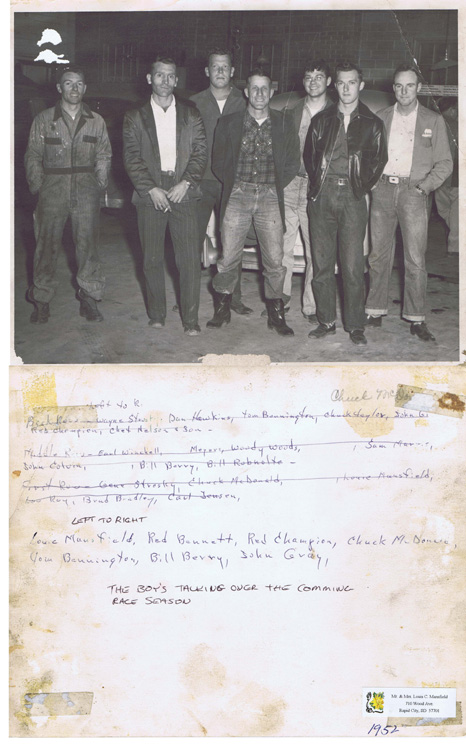 Chuck
Left to R.
Back Row - Wayne Don Hawkins, Tom Bennington, Chuck Taylor, John
Red Champion, Chet Nelson & Son -
Middle Row - Earl Meyers, Woody Woods, Sam
John , Bill Berry, Bill
Front Row Gene , Chuck McDonald, , Louie Mansfield,
Ray, Brad Bradley, Carl Jensen,
LEFT TO RIGHT
Louie Mansfield, Red Bennett, Red Champion, Chuck McDonald,
Tom Bennington, Bill Berry, John Gray,
THE BOY'S TALKING OVER THE COMMING
RACE SEASON
Mr. & Mrs. Louis C. Mansfield
Rapid City, SD 57701
1952